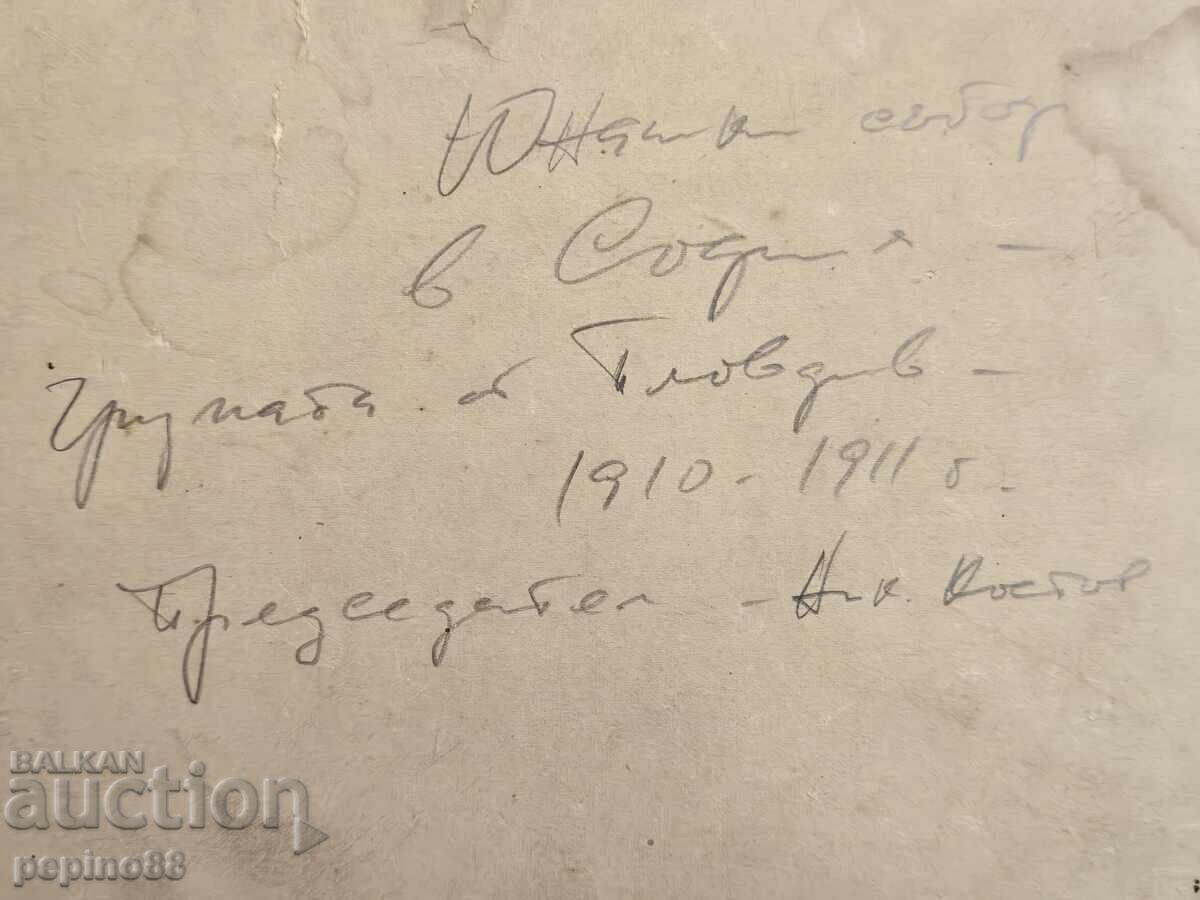 Юнашки събор
в София -
групата от Пловдив -
1910 - 1911 г.
Председател - Ник. Костов
BALKAN
auction
pepino88